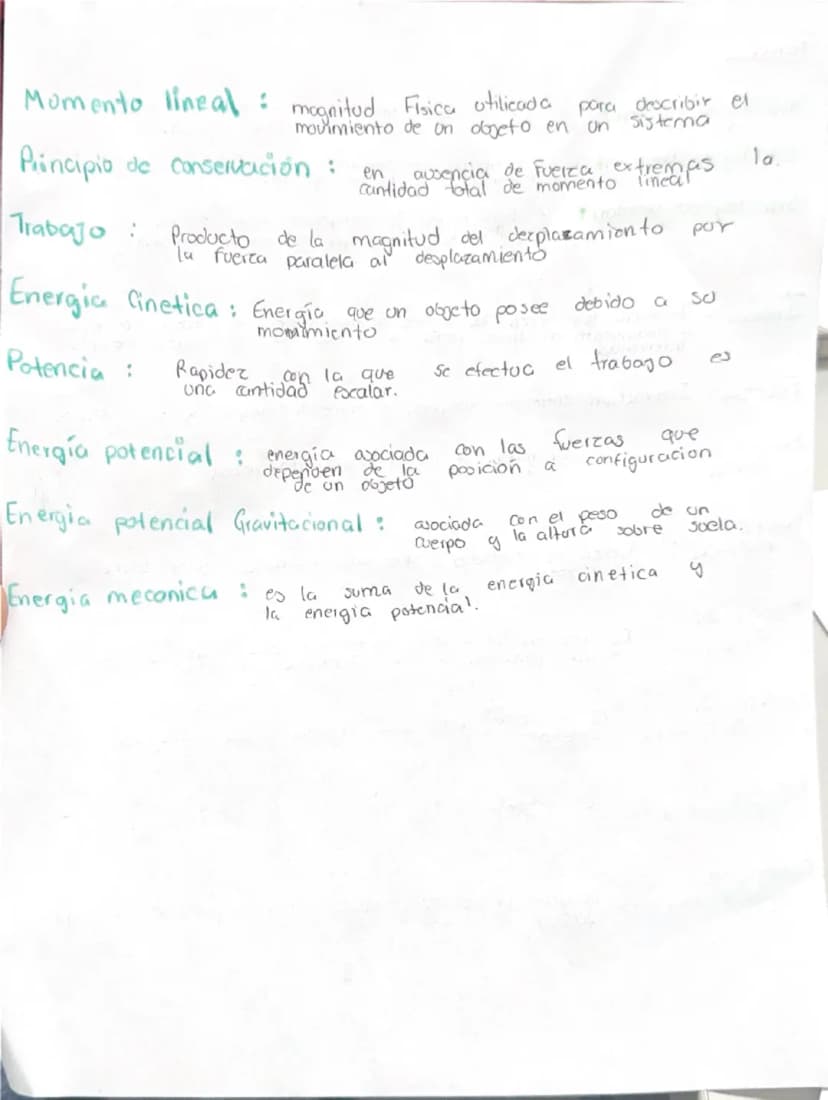 Momento lineal : magnitud Física utilizada para describir el
movimiento de un objeto en un sistema
Principio de conservación : en ausencia de Fuerza extremas la
cantidad total de momento lineal
Trabajo : Producto de la magnitud del dezplazamiento por
la fuerza paralela al desplazamiento
Energia Cinetica : Energía que un objeto posee debido a su
movimiento
Potencia : Rapidez con la que se efectua el trabajo es
una cantidad escalar.
Energía potencial : energía asociada con las fuerzas que
dependen de la posición a configuracion
de un objeto
Energia potencial Gravitacional : asociada con el peso de un
cuerpo y la altura sobre suela.
Energia mecanica : es la suma de la energia cinetica y
la energia potencial.